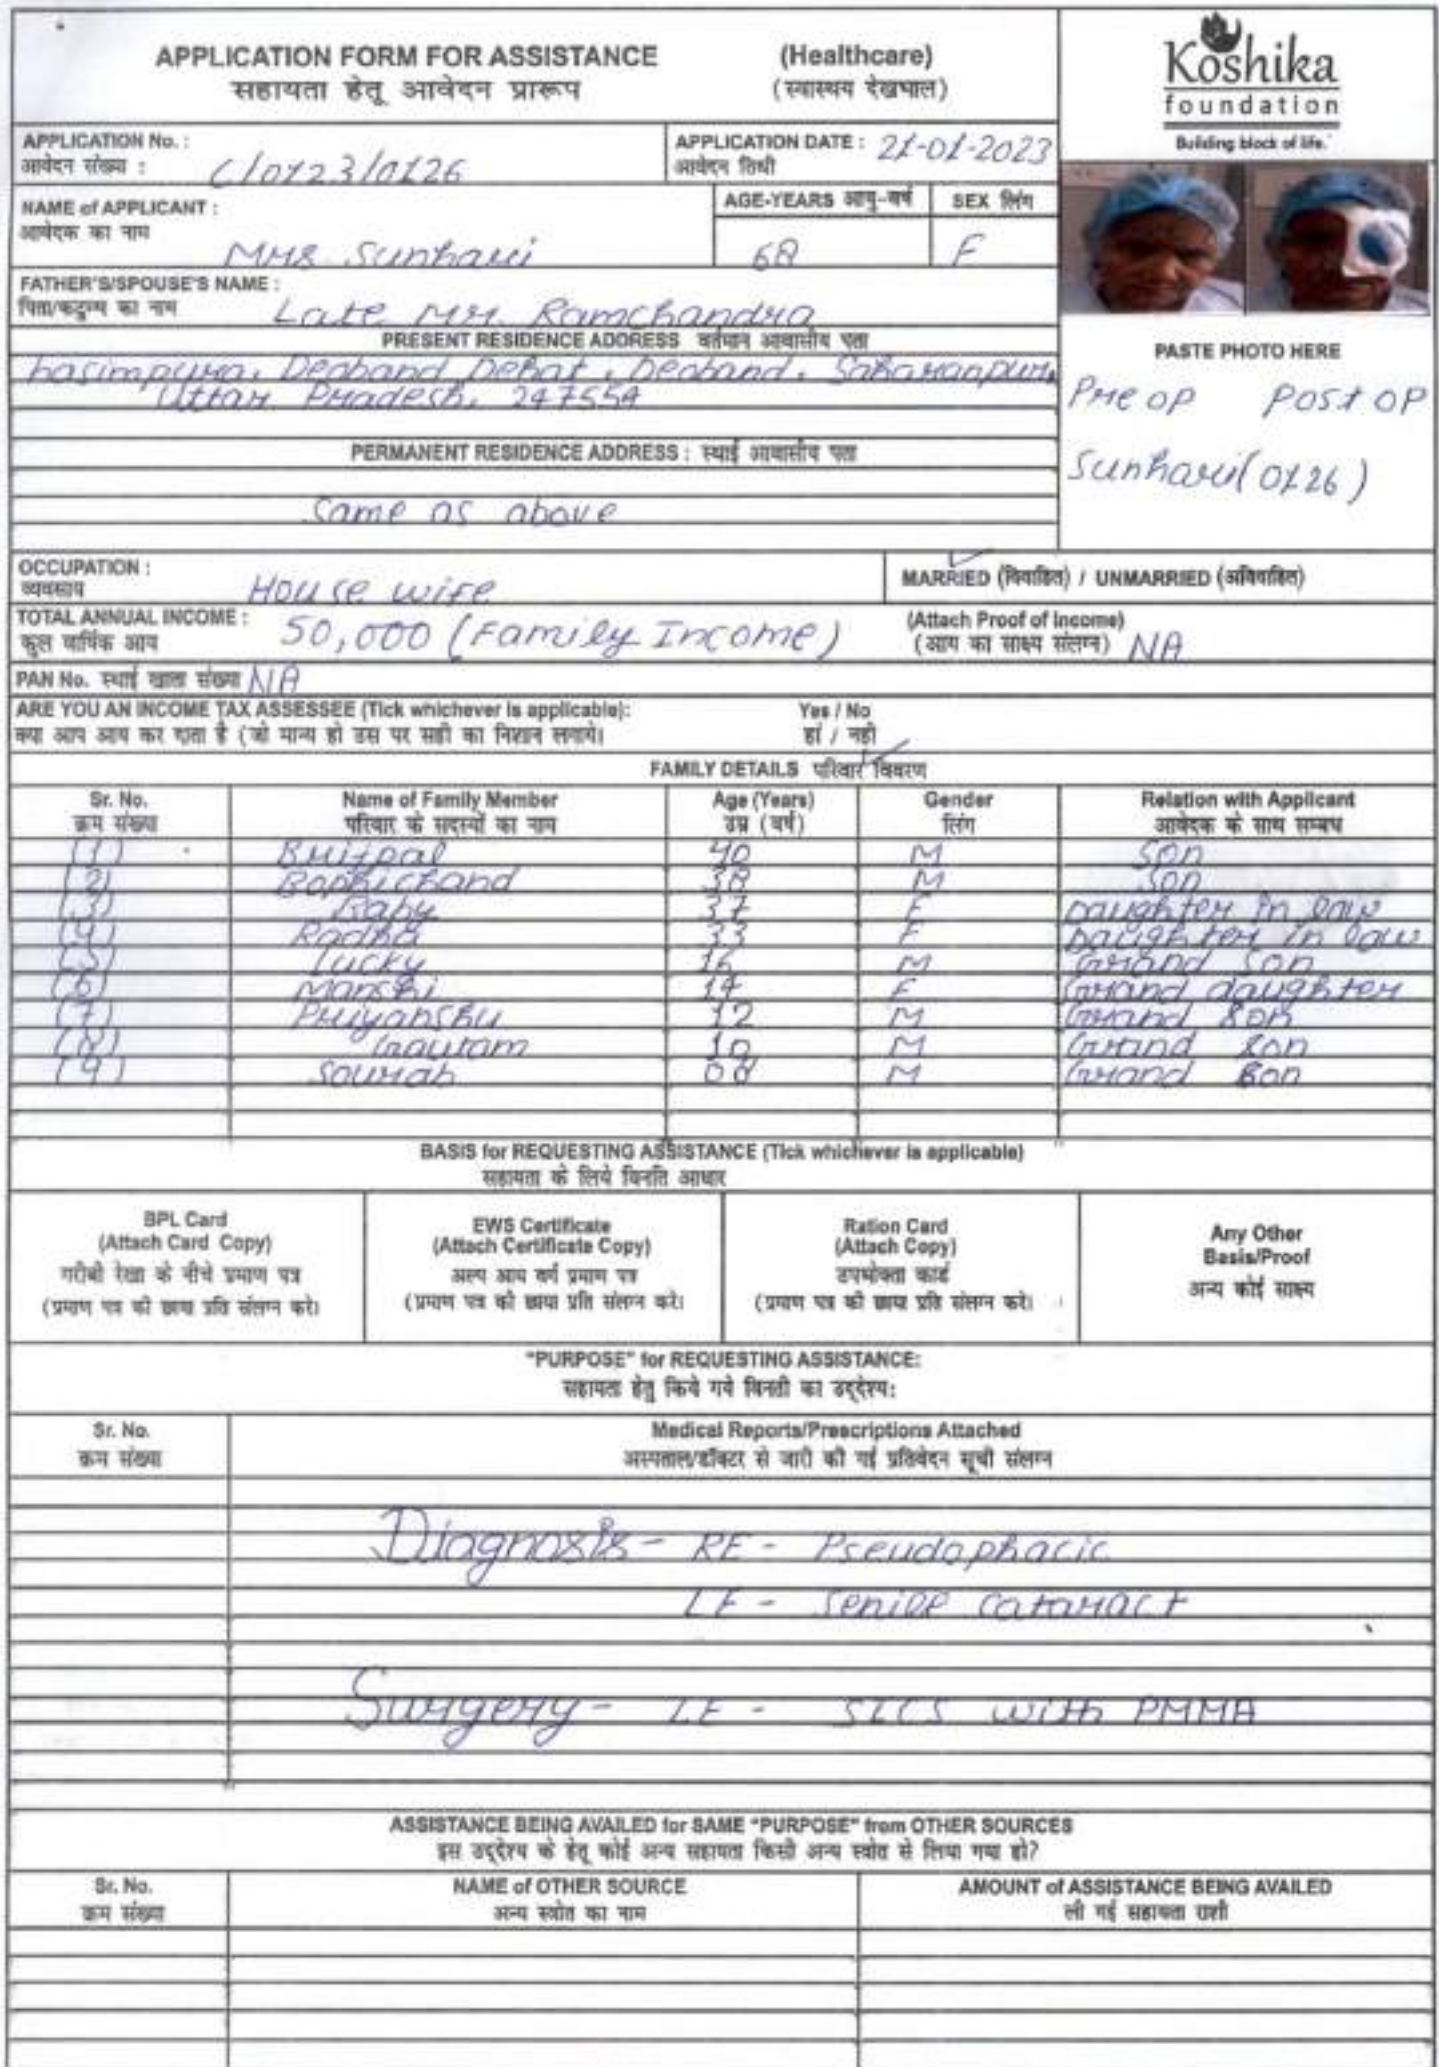 APPLICATION FORM FOR ASSISTANCE (Healthcare)
सहायता हेतू आवेदन प्रारूप (स्वास्थय देखभाल)
Koshika
foundation
Building block of life.
APPLICATION No. :
आवेदन संख्या : C/0123/0126
APPLICATION DATE : 21-01-2023
आवेदन तिथी
NAME of APPLICANT :
आवेदक का नाम
Mrs Sunhari
AGE-YEARS आयु-वर्ष
68
SEX लिंग
F
FATHER'S/SPOUSE'S NAME :
पिता/कटुम्ब का नाम
Late Mr. Ramchandra
PRESENT RESIDENCE ADDRESS वर्तमान आवासीय पता
Deoband Dehat, Deoband, Saharanpur,
Uttar Pradesh, 247554
PERMANENT RESIDENCE ADDRESS : स्थाई आवासीय पता
Same as above
PASTE PHOTO HERE
Pre op Post op
Sunhari (0126)
OCCUPATION :
व्यवसाय
House wife
MARRIED (विवाहित) / UNMARRIED (अविवाहित)
TOTAL ANNUAL INCOME :
कुल वार्षिक आय
50,000 (Family Income)
(Attach Proof of Income)
(आय का साक्ष्य संलग्न) NA
PAN No. स्थाई खाता संख्या NA
ARE YOU AN INCOME TAX ASSESSEE (Tick whichever is applicable): Yes / No
क्या आप आय कर दाता है (जो मान्य हो उस पर सही का निशान लगाये। हां / नही
FAMILY DETAILS परिवार विवरण
Sr. No. Name of Family Member Age (Years) Gender Relation with Applicant
क्रम संख्या परिवार के सदस्यों का नाम उम्र (वर्ष) लिंग आवेदक के साथ सम्बध
(1) Brijpal 40 M Son
(2) 38 M Son
(3) Baby 37 F Daughter in law
(4) Radha 33 F Daughter in law
(5) Lucky 16 M Grand Son
(6) Manshi 14 F Grand daughter
(7) Priyanshu 12 M Grand Son
(8) Gautam 10 M Grand Son
(9) Sourab 08 M Grand Son
BASIS for REQUESTING ASSISTANCE (Tick whichever is applicable)
सहायता के लिये विनति आधार
BPL Card
(Attach Card Copy)
गरीबी रेखा के नीचे प्रमाण पत्र
(प्रमाण पत्र की छाया प्रति संलग्न करे।
EWS Certificate
(Attach Certificate Copy)
अल्प आय वर्ग प्रमाण पत्र
(प्रमाण पत्र की छाया प्रति संलग्न करे।
Ration Card
(Attach Copy)
उपभोक्ता कार्ड
(प्रमाण पत्र की छाया प्रति संलग्न करे।
Any Other
Basis/Proof
अन्य कोई साक्ष्य
"PURPOSE" for REQUESTING ASSISTANCE:
सहायता हेतु किये गये विनती का उद्देश्य:
Sr. No. Medical Reports/Prescriptions Attached
क्रम संख्या अस्पताल/डॉक्टर से जारी की गई प्रतिवेदन सूची संलग्न
Diagnosis - RE - Pseudophacic
LE - Senile cataract
Surgery - LE - SICS with PMMA
ASSISTANCE BEING AVAILED for SAME "PURPOSE" from OTHER SOURCES
इस उद्देश्य के हेतू कोई अन्य सहायता किसी अन्य स्त्रोत से लिया गया हो?
Sr. No. NAME of OTHER SOURCE AMOUNT of ASSISTANCE BEING AVAILED
क्रम संख्या अन्य स्त्रोत का नाम ली गई सहायता राशी